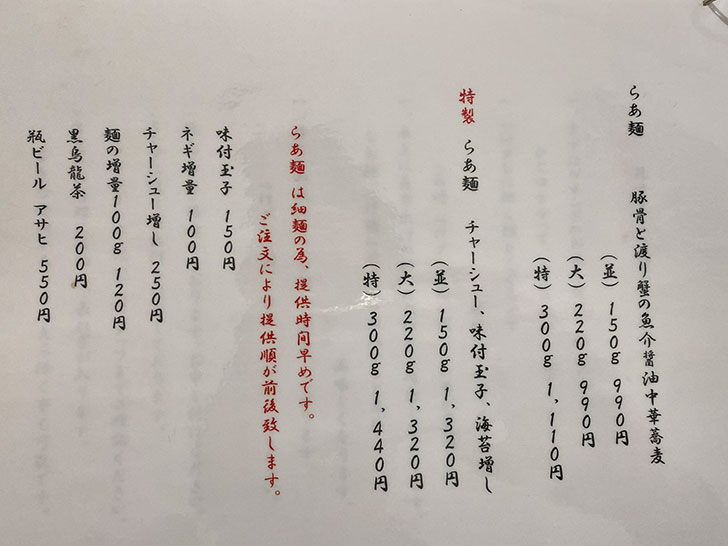 らあ麺 豚骨と渡り蟹の魚介醤油中華蕎麦
(並) 150g 990円
(大) 220g 990円
(特) 300g 1,110円
特製 らあ麺 チャーシュー、味付玉子、海苔増し
(並) 150g 1,320円
(大) 220g 1,320円
(特) 300g 1,440円
らあ麺 は細麺の為、提供時間早めです。
ご注文により提供順が前後致します。
味付玉子 150円
ネギ増量 100円
チャーシュー増し 250円
麺の増量100g 120円
黒烏龍茶 200円
瓶ビール アサヒ 550円